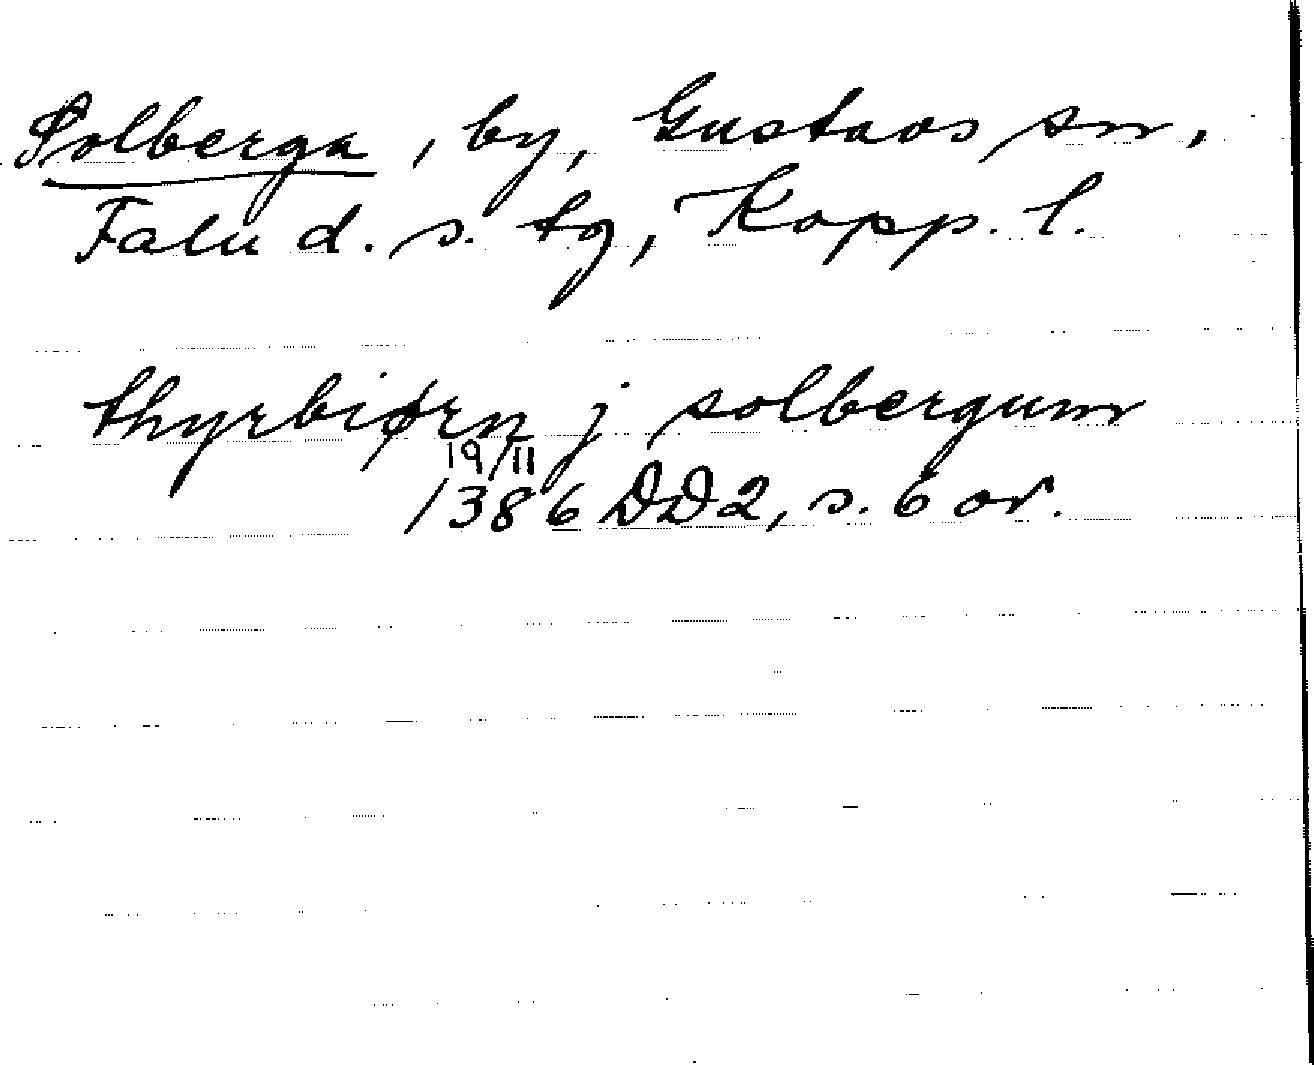 Solberga, by, Gustavs sn,
Falu d. s. tg, Kopp. l.
thyrbiørn j solbergum
19/11
1386 DD2, s. 6 or.